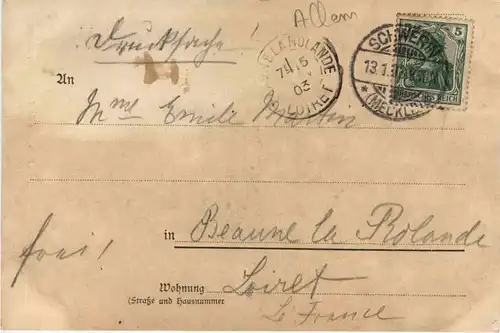 Allem
Drucksache!
BEAUNE LA ROLANDE
15
03
LOIRET
SCHWERIN
13.1.
* (MECKLB)
5
REICH
An
Mme Emile Martin
frei!
in Beaune la Rolande
Wohnung Loiret
(Straße und Hausnummer
La France